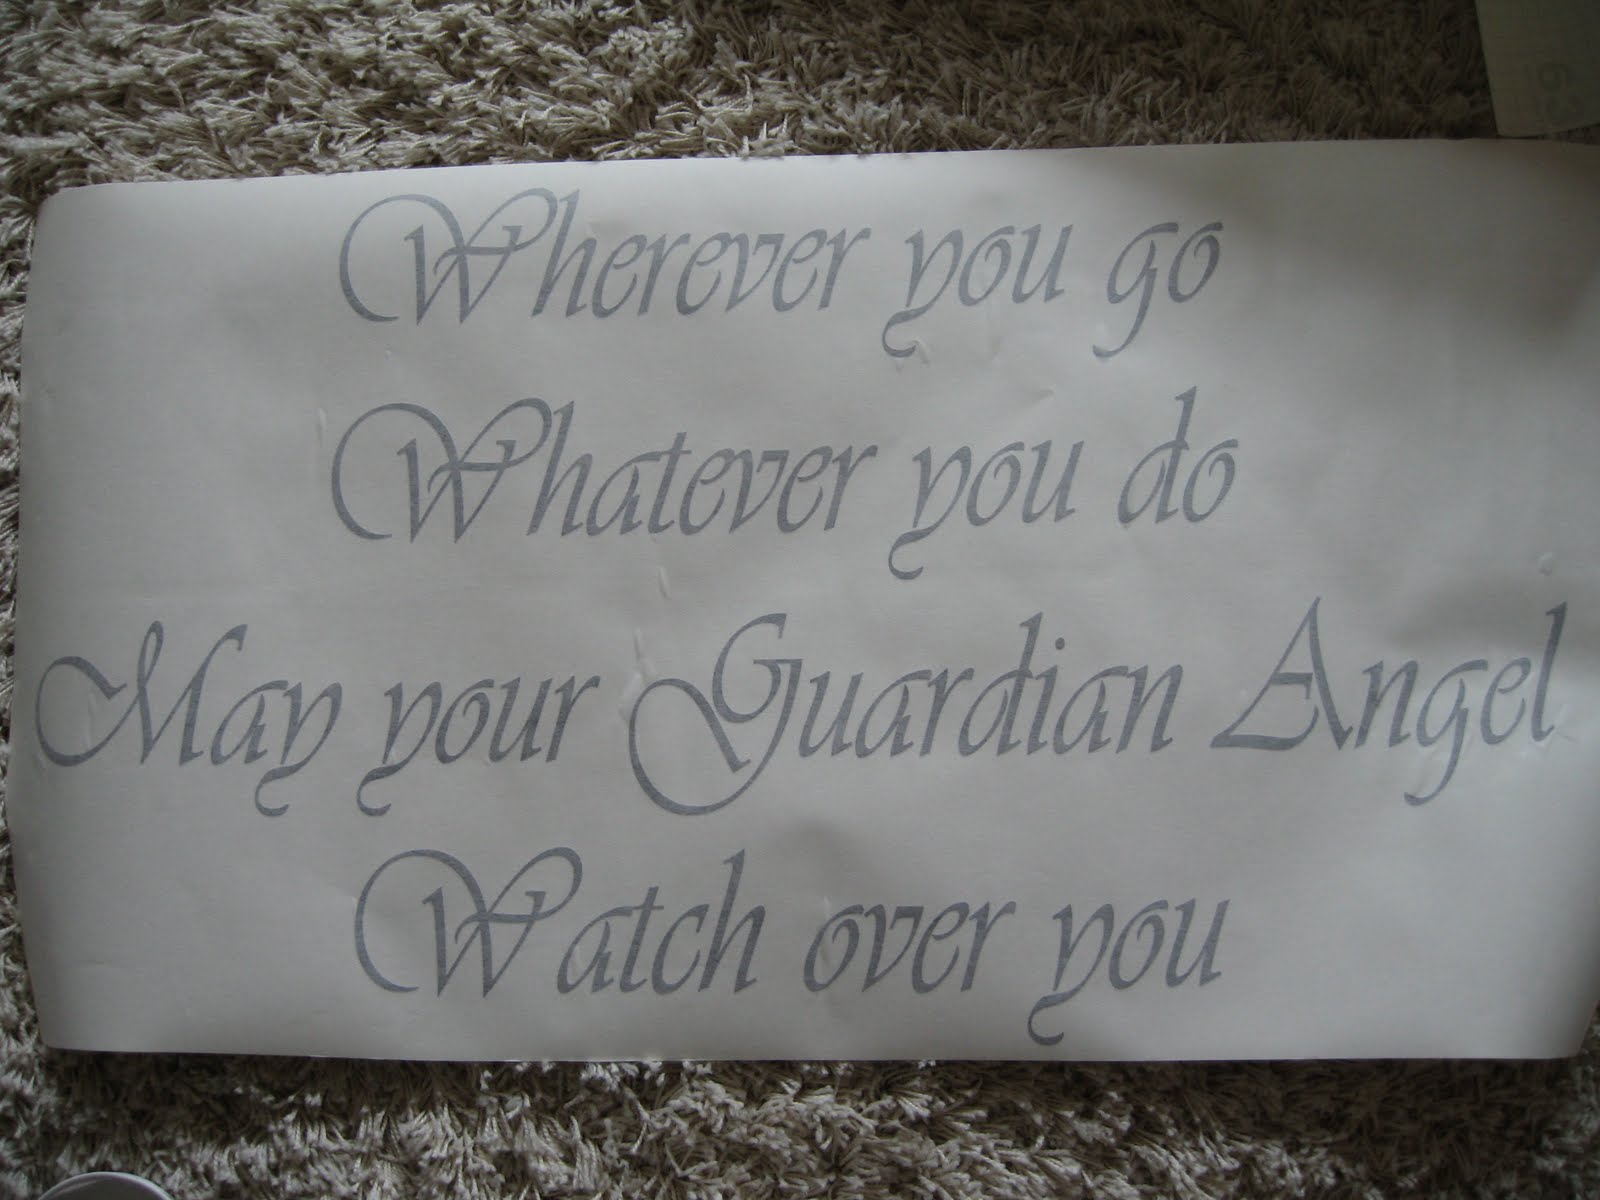 Wherever you go
Whatever you do
May your Guardian Angel
Watch over you